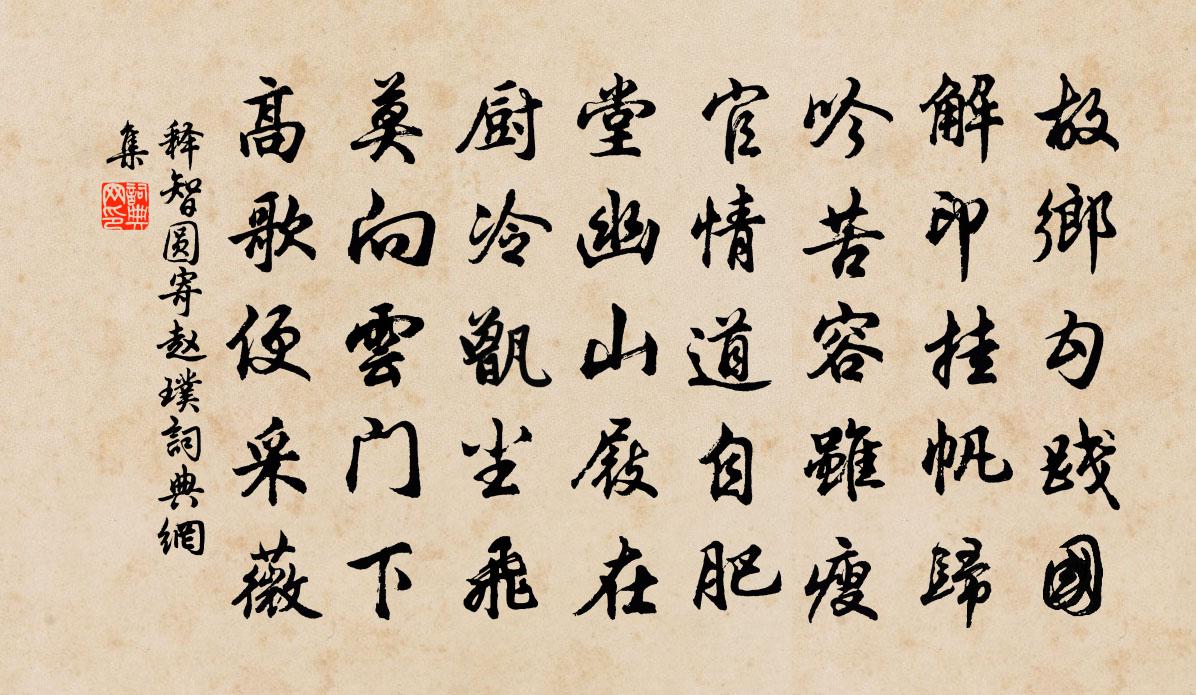 故鄉勾踐國
解印挂帆歸
吟苦容雖瘦
官情道自肥
堂幽山屐在
厨冷甑尘飛
莫向雲门下
高歌便采薇
释智圆寄赵璞詞典網
集
詞典网印